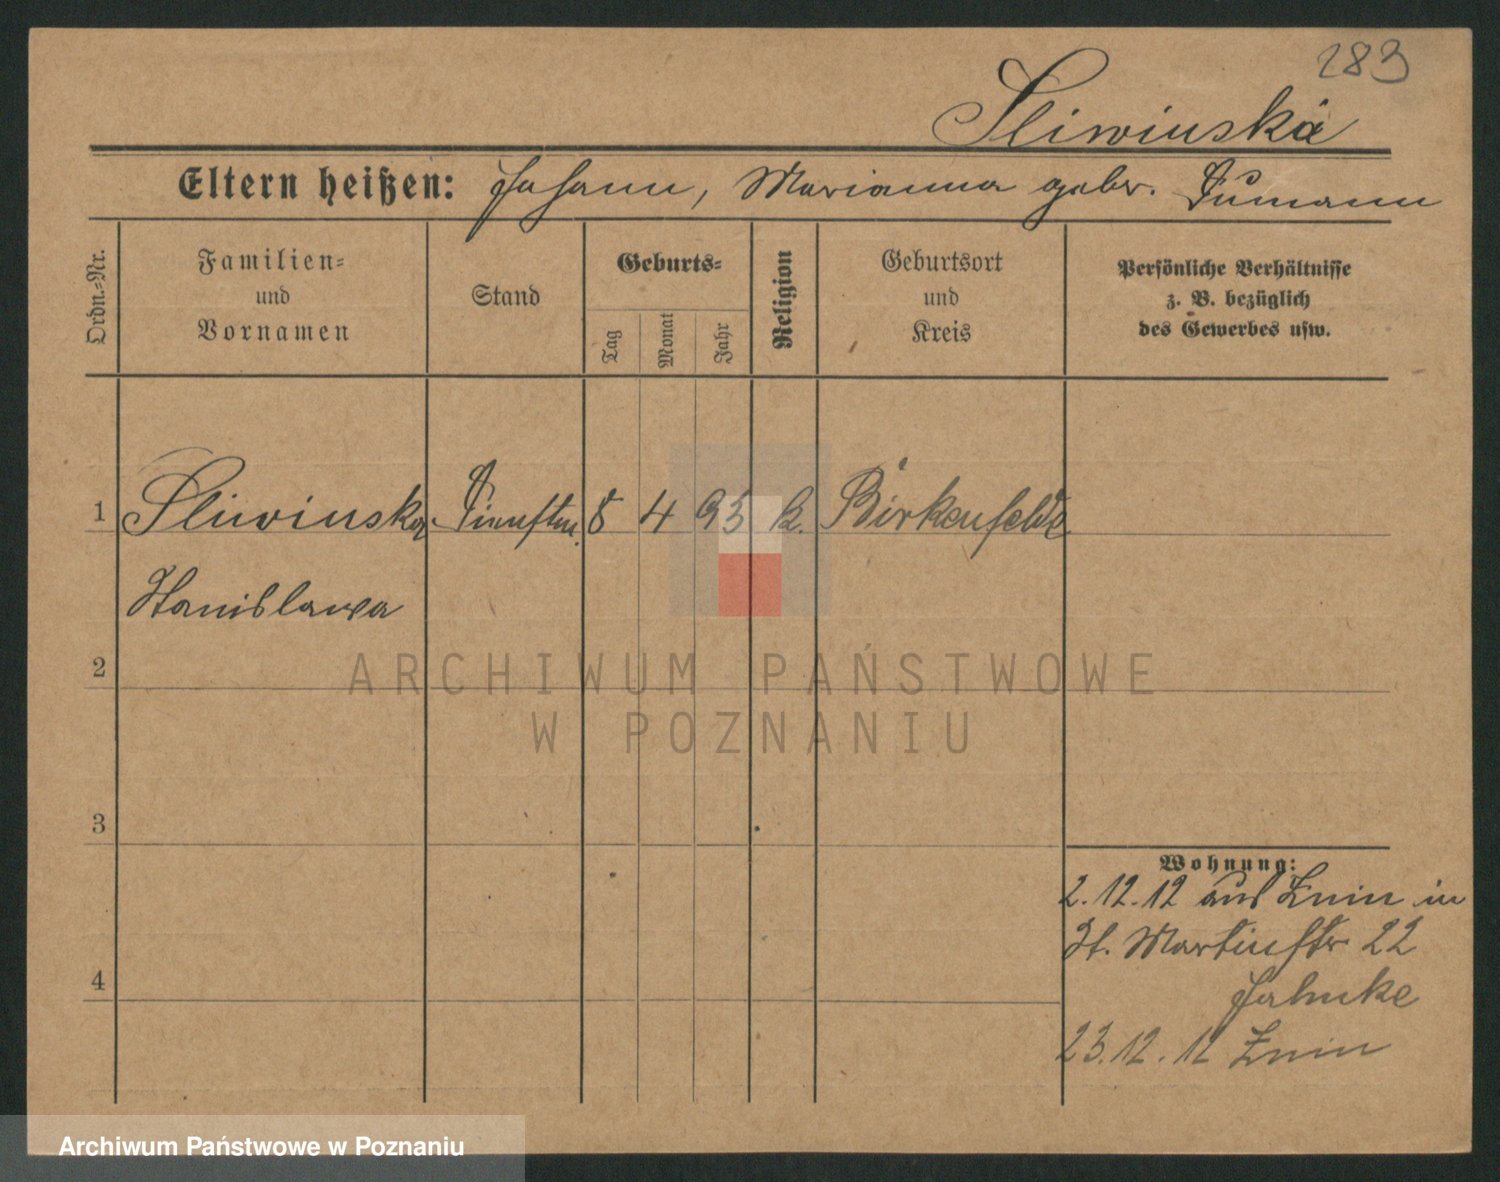 283
Sliwinska
Eltern heißen: Johann, Marianna gebr. Tumann
Ordn.-Nr.
Familien-
und
Vornamen
Stand
Geburts-
Tag
Monat
Jahr
Religion
Geburtsort
und
Kreis
Persönliche Verhältnisse
z. B. bezüglich
des Gewerbes usw.
1 Sliwinska 8 4 93 k. Birkenfelde
Stanislawa
2
3
4
Wohnung:
2.12.12 aus Znin in
St. Martinstr 22
Jahnke
23.12.12 Znin
ARCHIWUM PAŃSTWOWE
W POZNANIU
Archiwum Państwowe w Poznaniu